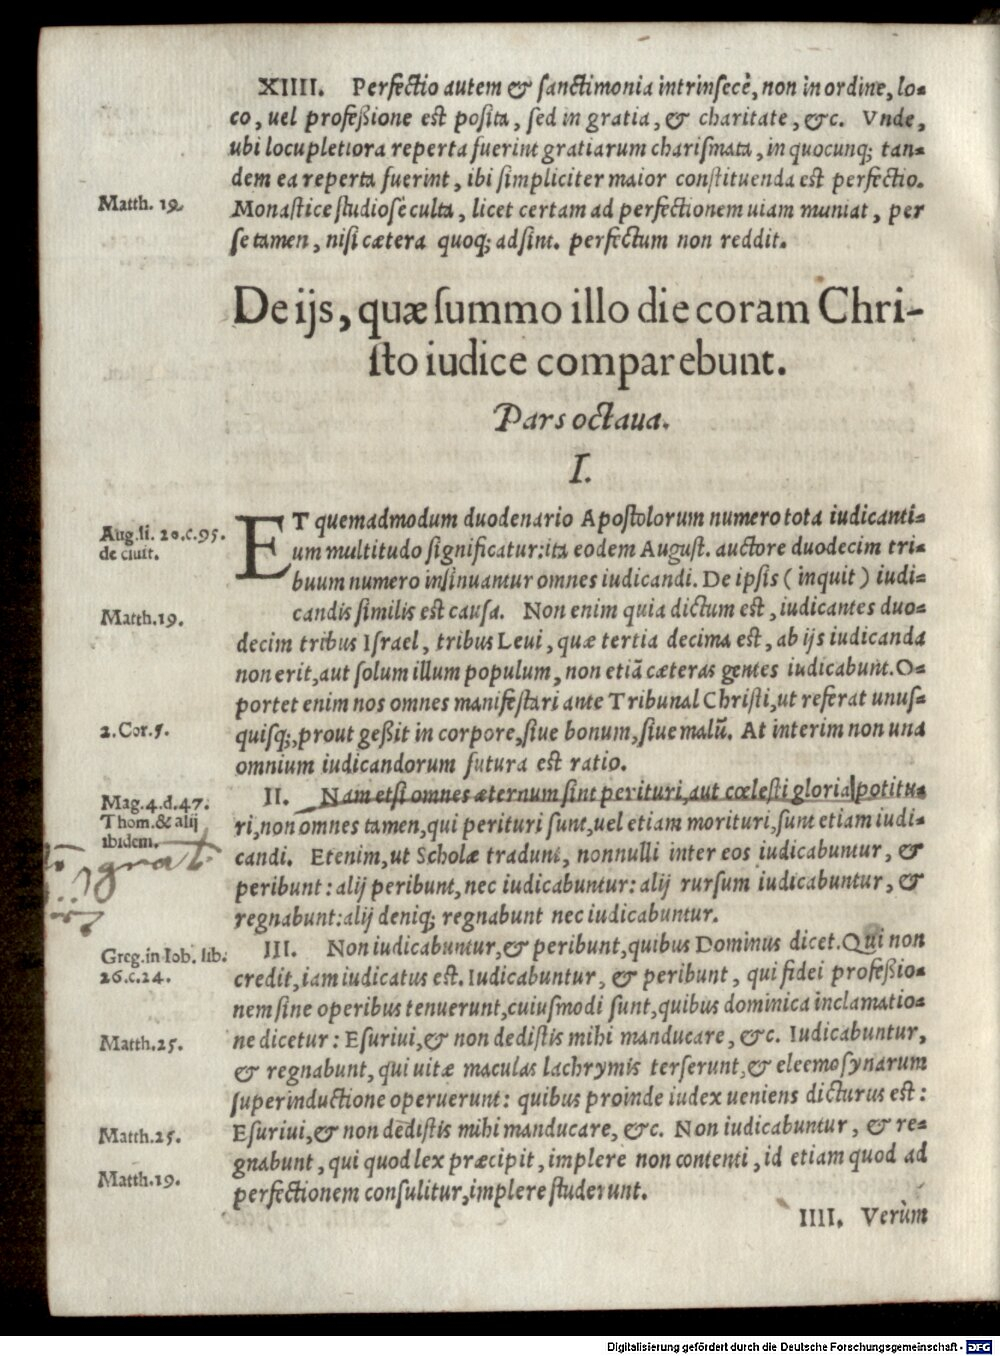 XIIII. Perfectio autem & ſanctimonia intrinſecè, non in ordine, lo=
co, uel profeßione est poſita, ſed in gratia, & charitate, &c. Vnde,
ubi locupletiora reperta fuerint gratiarum chariſmata, in quocunq; tan=
dem ea reperta fuerint, ibi ſimpliciter maior conſtituenda est perfectio.
Matth. 19. Monaſtice ſtudioſè culta, licet certam ad perfectionem uiam muniat, per
ſe tamen, niſi cætera quoq; adſint. perfectum non reddit.
De ijs, quæ ſummo illo die coram Chri-
ſto iudice comparebunt.
Pars octaua.
I.
ET quemadmodum duodenario Apoſtolorum numero tota iudicanti=
Aug. li. 20. c. 95.
de ciuit.
um multitudo ſignificatur: ita eodem Auguſt. auctore duodecim tri=
buum numero inſinuantur omnes iudicandi. De ipſis (inquit) iudi=
Matth. 19. candis ſimilis est cauſa. Non enim quia dictum est, iudicantes duo=
decim tribus Iſrael, tribus Leui, quæ tertia decima est, ab ijs iudicanda
non erit, aut ſolum illum populum, non etiã cæteras gentes iudicabunt. O=
portet enim nos omnes manifeſtari ante Tribunal Chriſti, ut referat unuſ=
2. Cor. 5. quiſq;, prout geßit in corpore, ſiue bonum, ſiue malũ. At interim non una
omnium iudicandorum futura est ratio.
Mag. 4. d. 47.
Thom. & alij
ibidem.
II. Nam etſi omnes æternum ſint perituri, aut cœleſti gloria potitu=
ri, non omnes tamen, qui perituri ſunt, uel etiam morituri, ſunt etiam iudi=
candi. Etenim, ut Scholæ tradunt, nonnulli inter eos iudicabuntur, &
peribunt: alij peribunt, nec iudicabuntur: alij rurſum iudicabuntur, &
regnabunt: alij deniq; regnabunt nec iudicabuntur.
Greg. in Iob. lib.
26. c. 24.
III. Non iudicabuntur, & peribunt, quibus Dominus dicet. Qui non
credit, iam iudicatus est. Iudicabuntur, & peribunt, qui fidei profeßio=
nem ſine operibus tenuerunt, cuiuſmodi ſunt, quibus dominica inclamatio=
Matth. 25. ne dicetur: Eſuriui, & non dediſtis mihi manducare, &c. Iudicabuntur,
& regnabunt, qui uitæ maculas lachrymis terſerunt, & eleemoſynarum
ſuperinductione operuerunt: quibus proinde iudex ueniens dicturus est:
Matth. 25. Eſuriui, & non dediſtis mihi manducare, &c. Non iudicabuntur, & re=
gnabunt, qui quod lex præcipit, implere non contenti, id etiam quod ad
Matth. 19. perfectionem conſulitur, implere ſtuderunt.
IIII. Verùm
Digitalisierung gefördert durch die Deutsche Forschungsgemeinschaft - DFG